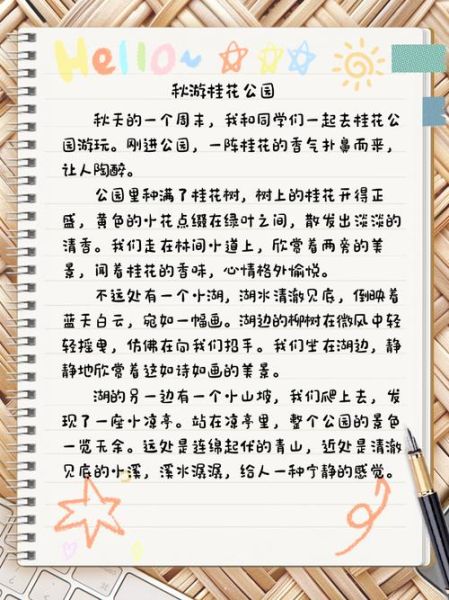 Hello~
秋游桂花公园
秋天的一个周末，我和同学们一起去桂花公
园游玩。刚进公园，一阵桂花的香气扑鼻而来，
让人陶醉。
公园里种满了桂花树，树上的桂花开得正
盛，黄色的小花点缀在绿叶之间，散发出淡淡的
清香。我们走在林间小道上，欣赏着两旁的美
景，闻着桂花的香味，心情格外愉悦。
不远处有一个小湖，湖水清澈见底，倒映着
蓝天白云，宛如一幅画。湖边的柳树在微风中轻
轻摇曳，仿佛在向我们招手。我们坐在湖边，静
静地欣赏着这如诗如画的美景。
湖的另一边有一个小山坡，我们爬上去，发
现了一座小凉亭。站在凉亭里，整个公园的景色
一览无余。远处是连绵起伏的青山，近处是清澈
见底的小溪，溪水潺潺，给人一种宁静的感觉。